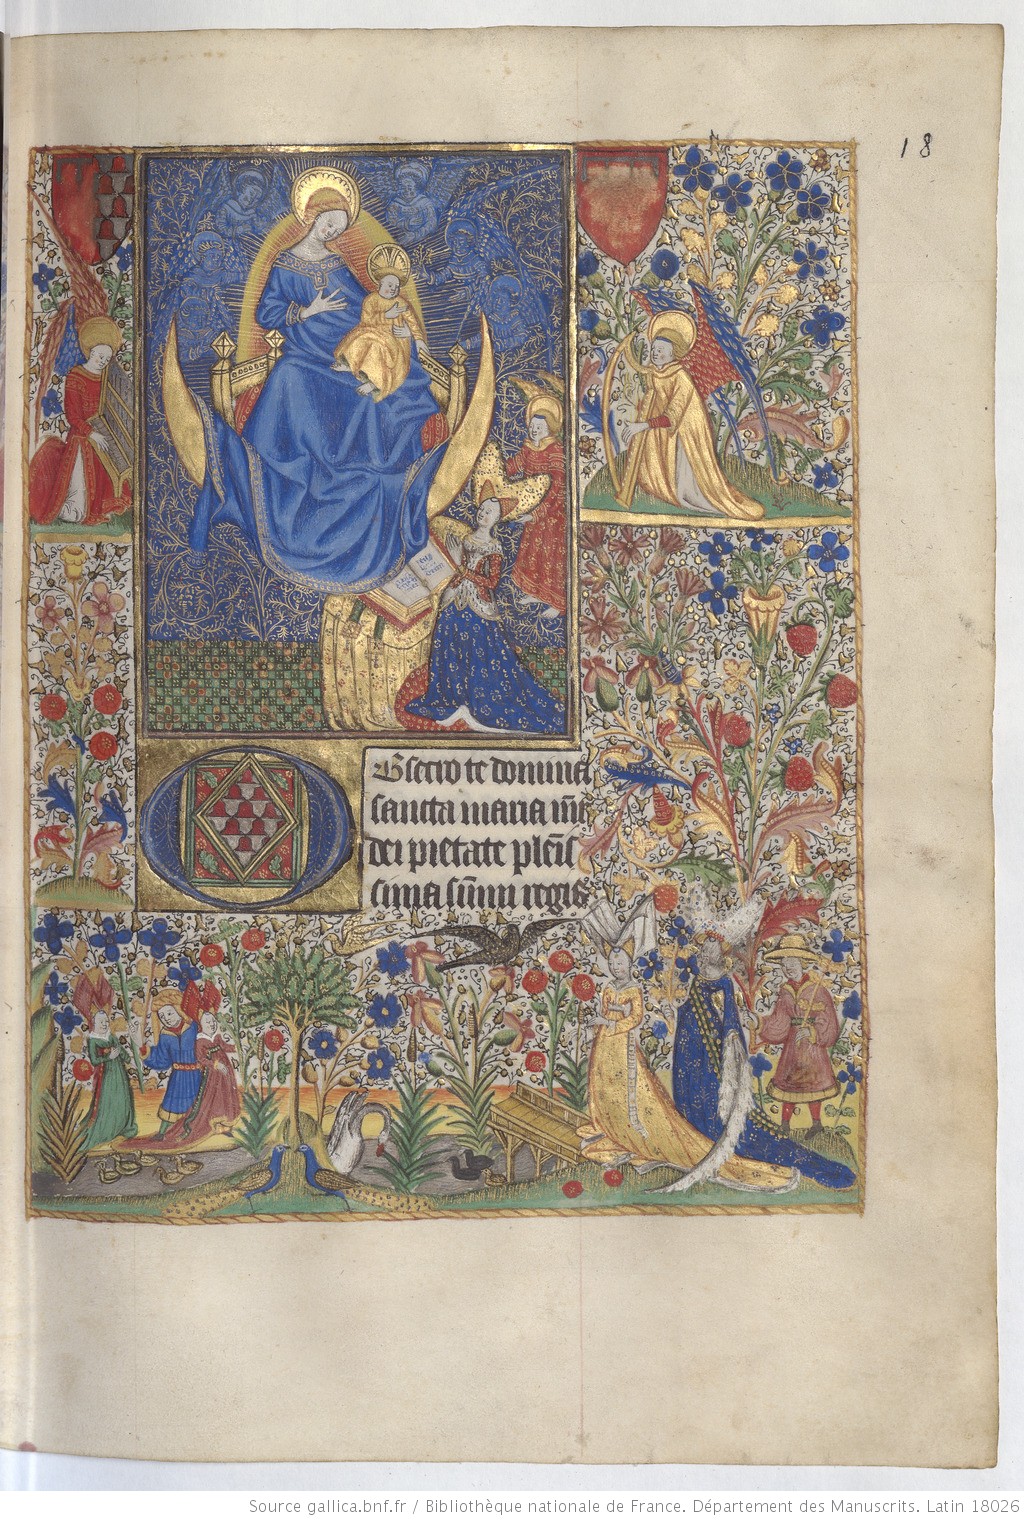 18
Obsecro te domina
sancta maria m̄r
dei pietate pleīs
sima sum̄i regis
Source gallica.bnf.fr / Bibliothèque nationale de France. Département des Manuscrits. Latin 18026